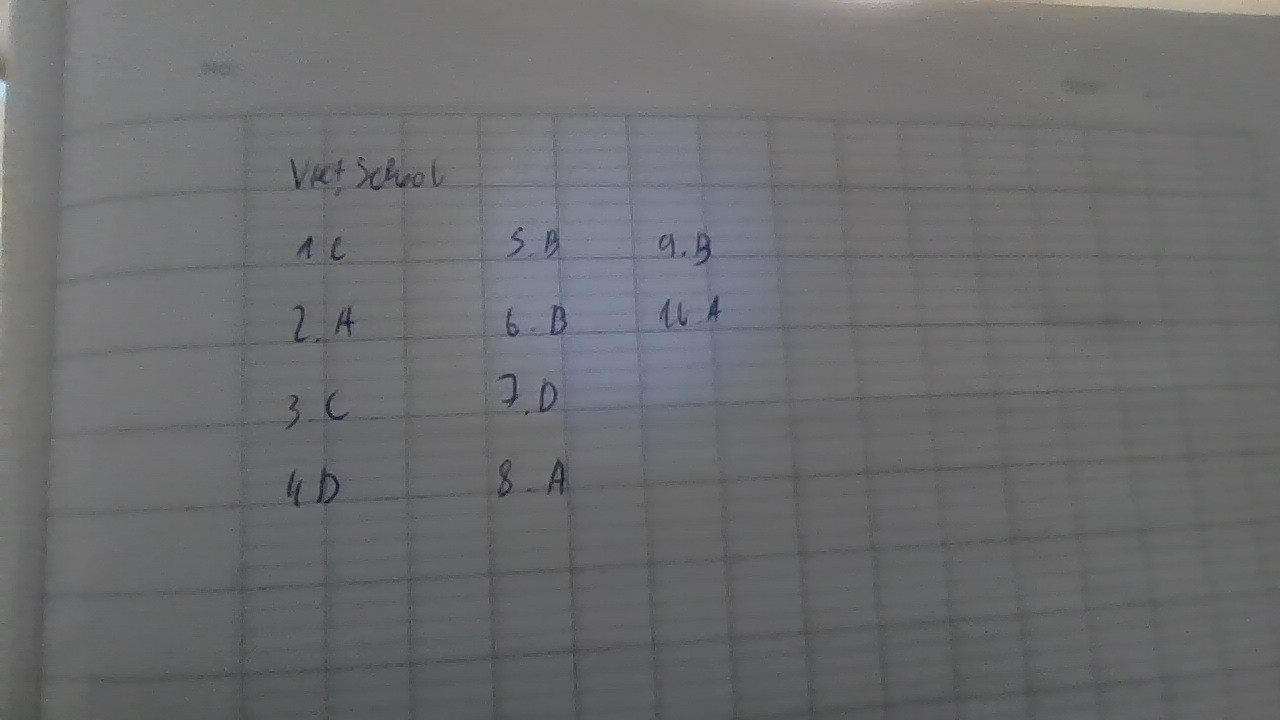 School
1 C
2. A
3. C
4 D
5. B
6. B
7. D
8. A
9. B
A